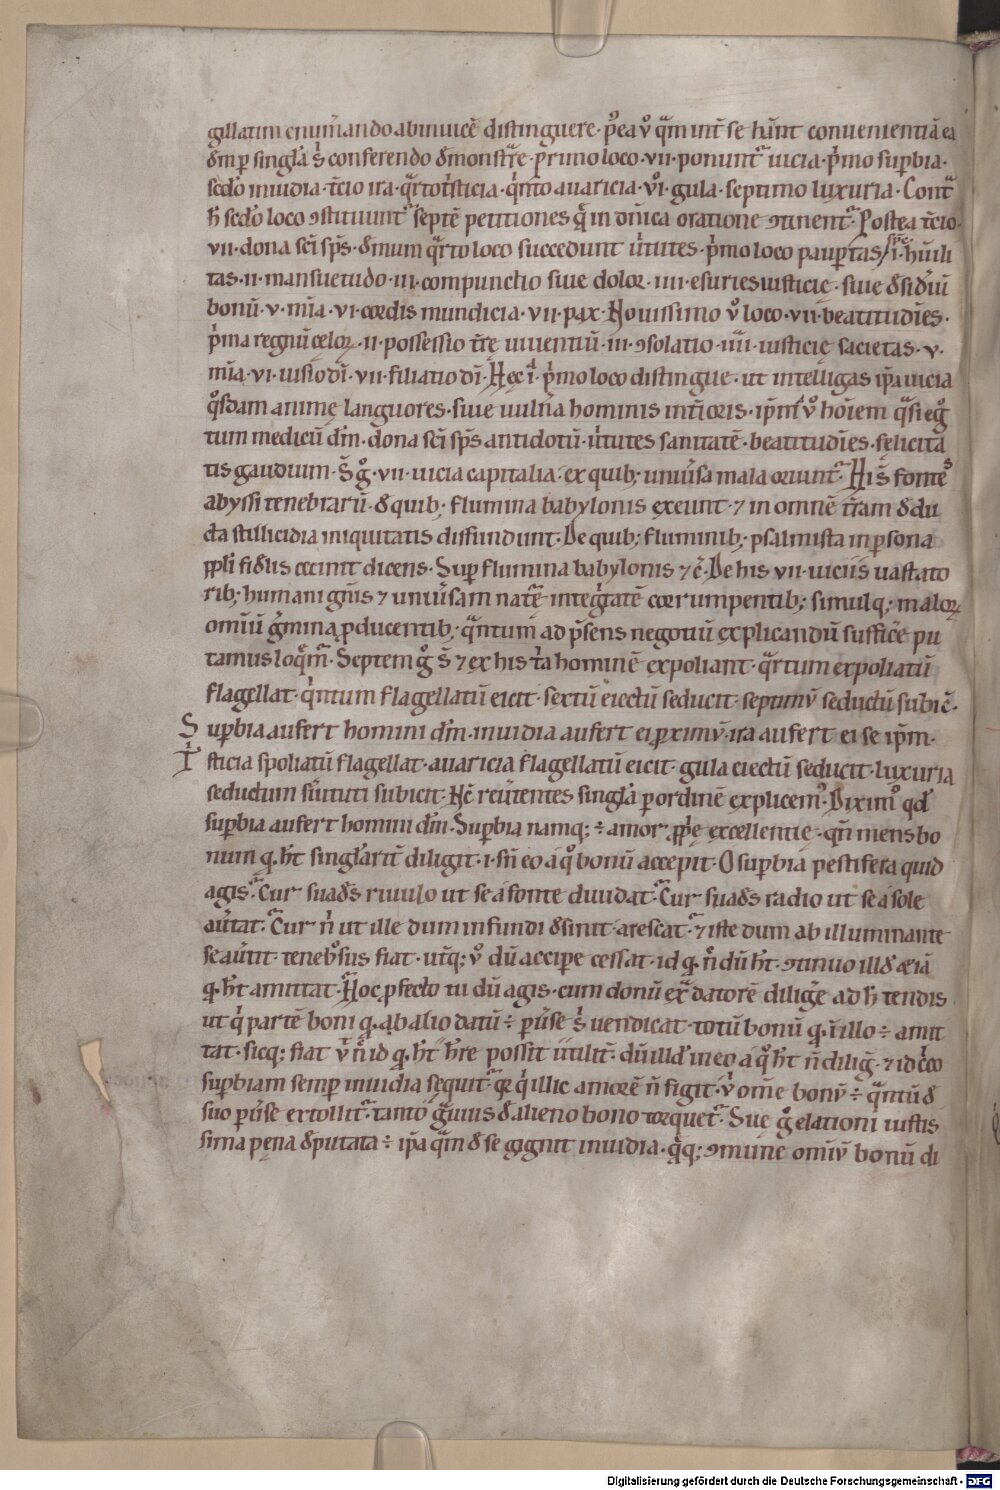 gillatim enum̄ando abinuicē distinguere· p̾ea v̊ qᷓm int̄ se hn̄t conuenientiā ea
dm̄ꝑ singl̓a s̓ conferendo dm̄onstrᷓe· primo loco·vii·ponunt᷑ uicia· pͥmo suꝑbia·
scd̓o inuidia· t̄cio ira· qᷓrto tͥsticia· qͥnto auaricia· vͦI· gula· septimo luxuria· Contᷓ
h̄ scd̓o loco ꝯstituunt᷑ septē petitiones qͣ̄ in dn̄ica oratione ꝯtinent᷑· Postea t̄cio·
vii· dona sc̄i sps̄· dmum qᷓrto loco succedunt v̓tutes· pͥmo loco pauꝑtas/ sp̄c ·i· hūili
tas· ii· mansuetudo· iii· compunctio siue dolor· iiii· esuries iusticię· siue dsid̓iū
bonū· v· mīa· vi· cordis mundicia· vii· pax· Nouissimo v̊ loco· vii· beatitudīes·
pͥma regnū celoꝝ· ii· possessio t̄rę uiuentiū· iii· ꝯsolatio· iiii· iusticię sacietas· v·
mīa· vi· uisio dī· vii· filiatio dī· Hęc ·i· pͥmo loco distingue· ut intelligas ip̄a uicia
qͦsdam animę languores· siue uuln̄a hominis int̄ioris· ip̄m v̊ hoīem qᷓsi eg̊
tum medicū dm̄· dona sc̄i sps̄ antidotū· v̓tutes sanitatē· beatitudīes· felicita
tis gaudium· S̄ g̊· vii· uicia capitalia· ex quib; uniu̓sa mala oriunt᷑· Hi s̄ fontes
abyssi tenebrarū· d quib; flumina babylonis exeunt· ⁊ in omnē t̄ram d du
cta stillicidia iniquitatis diffundunt· De quib; fluminib; psalmista in ꝑsona
ppl̓i fidlis cecinit dicens· Suꝑ flumina babylonis ⁊ c̄· De his vii· uiciis uastato
rib; humani gn̄is ⁊ uniu̓sam nat᷑ę integͥtatē corrumpentib; simulq; maloꝝ
omīū g̓mina ꝓducentib; qᷓntum ad p̄sens negotiū explicandū suffic̄e pu
tamus loqͣm᷑· Septem g̊ s̄ ⁊ ex his tͥa hominē expoliant· qᷓrtum expoliatū
flagellat· qͥntum flagellatū eicit· sextū eiectū seducit· septimū seductū subic̄·
Suꝑbia aufert homini dm̄· inuidia aufert ei ꝓximū· ira aufert ei se ip̄m·
Tͥsticia spoliatū flagellat· auaricia flagellatū eicit· gula eiectū seducit· luxuria
seductum s̓uituti subicit· Nc̄ reu̓tentes singl̓a ꝑ ordinē explicem᷒· Dixim᷒ qd̓
suꝑbia aufert homini dm̄· Suꝑbia namq; ÷ amor ꝓp̓ę excellentię· qn̄ mens bo
num q̜ ht̄ singl̓arit̄ diligit· i· sn̄ eo a qͦ bonū accepit· O suꝑbia pestifera quid
agis᷑ Cur suads riuulo ut se a fonte diuidat᷑ Cur suads radio ut se a sole
au̓tat᷑ Cur nͥ ut ille dum infundi dsinit· arescat᷑ ⁊ iste dum ab illuminante
se au̓tit· tenebͦsus fiat· ut̓q; v̊ dū acciꝑe cessat· id q̜ nͦ̄dū ht̄· ꝯtinuo illd̓ &iā
q̜ ht̄ amittat· Hoc ꝓfecto tu dū agis· cum donū ext᷑ datorē dilig̓e ad h̄ tendis
ut qͥ partē boni q̜ ab alio datū ÷ ꝑu̓se s̓ uendicat· totū bonū q̜ ī illo ÷ amit
tat· sicq; fiat v̓ nͨ id q̜ ht̄ hr̄e possit utilit̄· dū illd̓ in eo a qͦ ht̄ n̄ dilig̓· ⁊ idcͥco
suꝑbiam semꝑ inuidia sequit᷑· qr qͥ illic amorē n̄ figit· vͥ om̄e bonū ÷ qᷓntū d
suo ꝑu̓se extollit᷑· tanto gᷓuius d alieno bono torquet᷑· Suę g̊ elationi iustis
sima pęna dputata ÷ ip̄a qᷓm d se gignit inuidia· qͥq; ꝯmune omīū bonū di
Digitalisierung gefördert durch die Deutsche Forschungsgemeinschaft - DFG